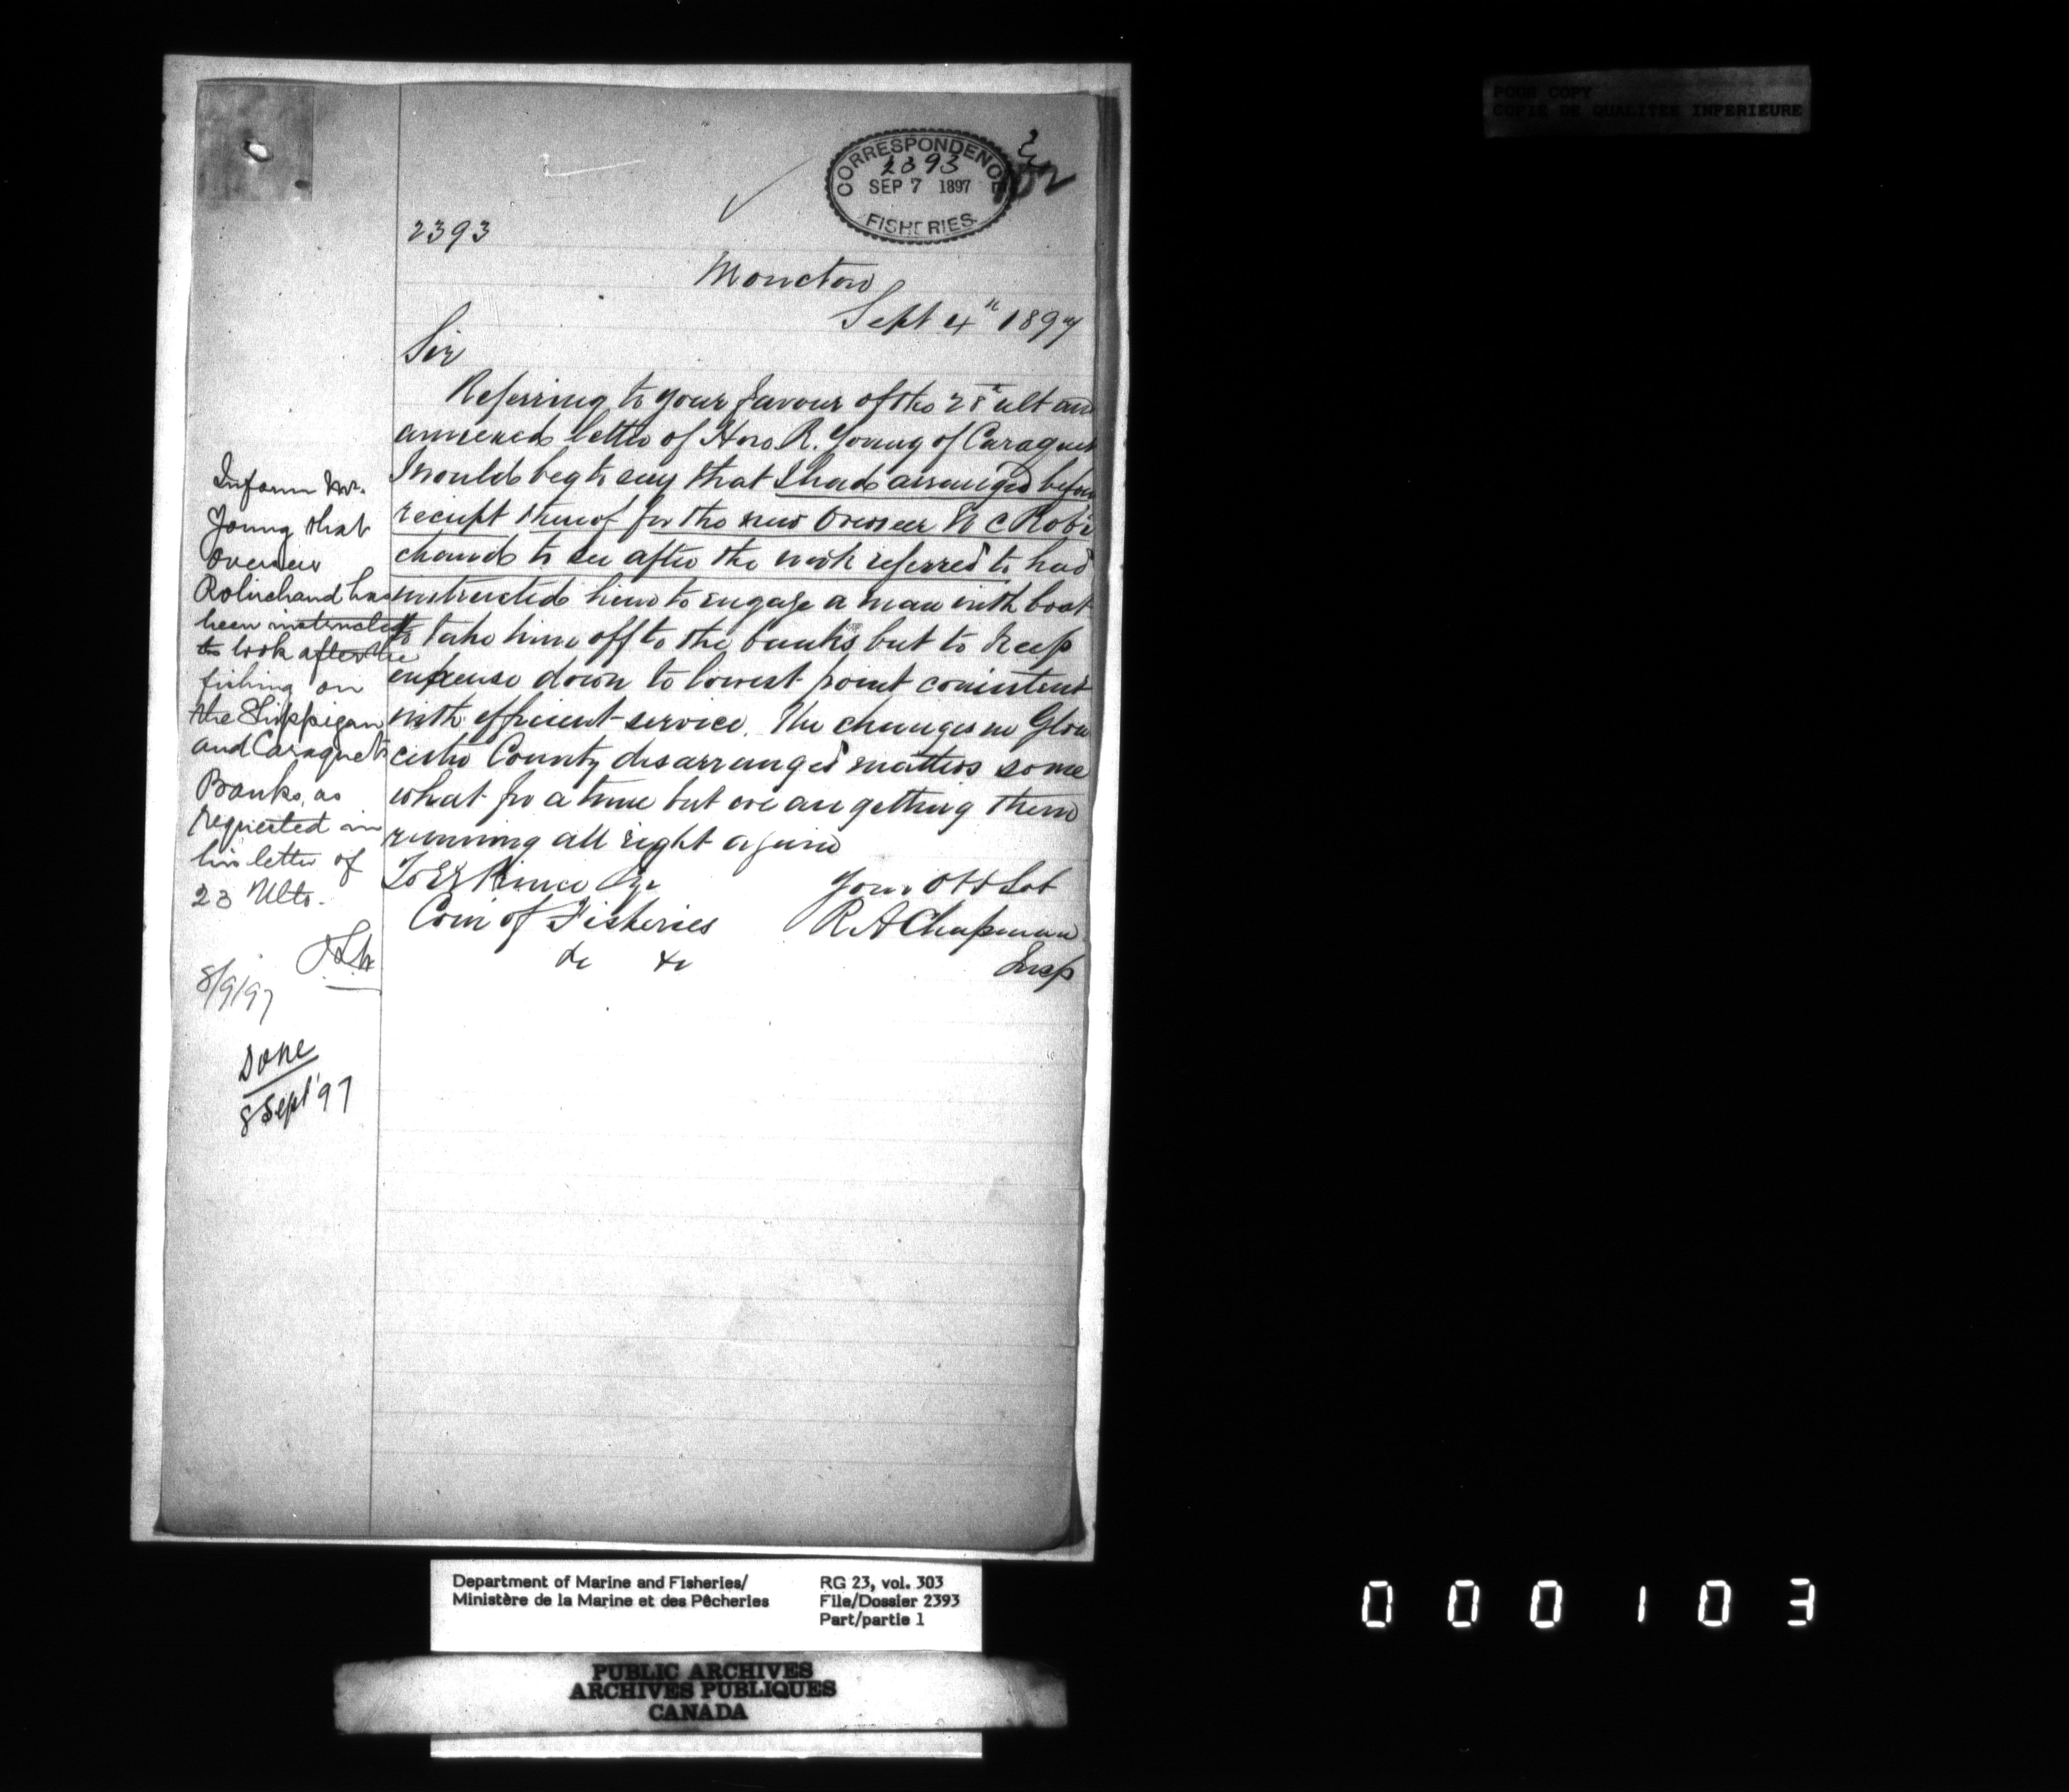 POOR COPY
COPIE DE QUALITEE INFERIEURE
CORRESPONDENCE
2393
SEP 7 1897
FISHERIES.
2393
Moncton
Sept 4th 1897
Sir
Referring to your favour of the 28th ult and
annexed letter of Hon. R. Young of Caraquet
I would beg to say that I had arranged before
receipt thereof for the new Overseer H C Robi
chaud to see after the work referred to had
instructed him to engage a man with boat
to take him off to the banks but to keep
expense down to lowest point consistent
with efficient service. The changes in Glou
cester County disarranged matters some
what for a time but we are getting them
running all right again
To E E Prince Esq
Com of Fisheries
&c &c
Your Obt Svt
R A Chapman
Insp
Inform Mr.
Young that
Overseer
Robichaud has
been instructed
to look after the
fishing on
the Shippigan
and Caraquet
Banks, as
requested in
his letter of
23 Ulto.
8/9/97
Done
8 Sept '97
Department of Marine and Fisheries/
Ministère de la Marine et des Pêcheries
RG 23, vol. 303
File/Dossier 2393
Part/partie 1
PUBLIC ARCHIVES
ARCHIVES PUBLIQUES
CANADA
000103